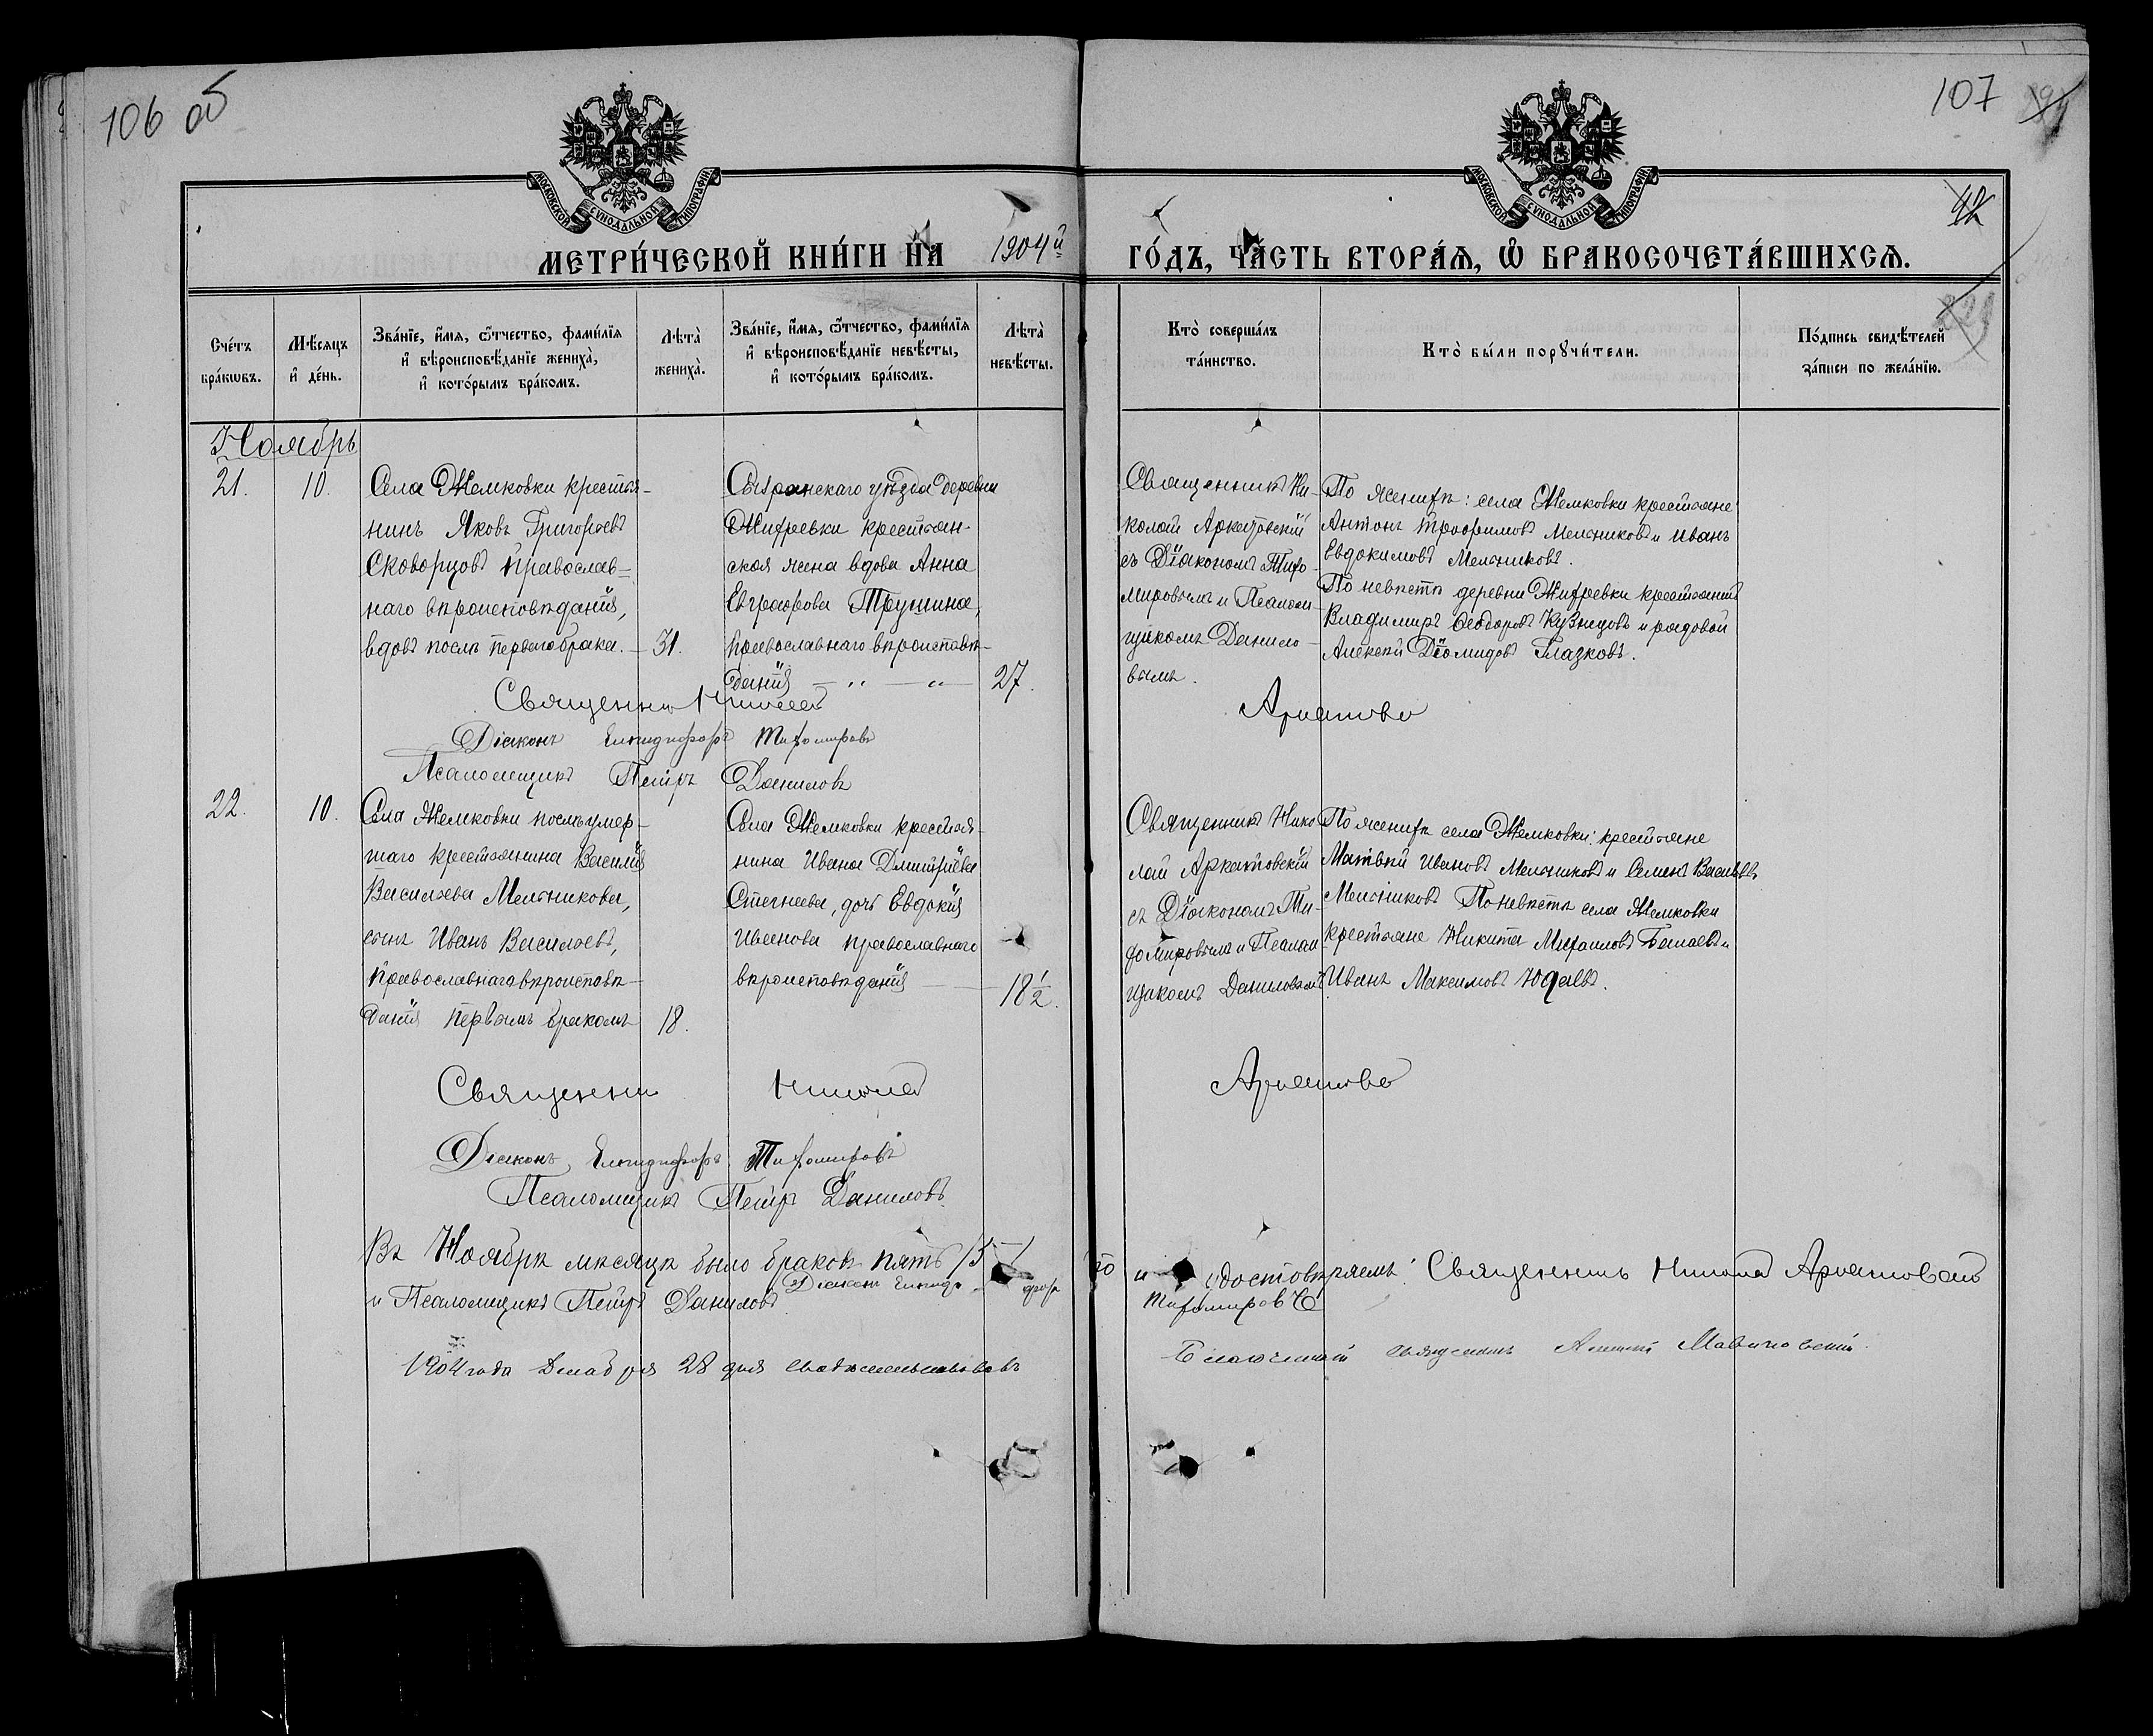 106 об
107
42
МОСКОВСКОЙ СУНОДАЛЬНОЙ ТИПОГРАФІИ
МОСКОВСКОЙ СУНОДАЛЬНОЙ ТИПОГРАФІИ
МЕТРИ́ЧЕСКОЙ КНИ́ГИ НА 1904й ГО́ДЪ, ЧА́СТЬ ВТОРА́Я, Ѽ БРАКОСОЧЕТА́ВШИХСЯ.
Сче́тъ
бра́кѡвъ.
Мѣ́сяцъ
и҆ де́нь.
Зва́нїе, и҆́мя, ѻ҆́тчество, фами́лїя
и҆ вѣроисповѣ́данїе жениха̀,
и҆ кото́рымъ бра́комъ.
Лѣта̀
жениха̀.
Зва́нїе, и҆́мя, ѻ҆́тчество, фами́лїя
и҆ вѣроисповѣ́данїе невѣ́сты,
и҆ кото́рымъ бра́комъ.
Лѣта̀
невѣ́сты.
Кто̀ соверша́лъ
та́инство.
Кто̀ бы́ли порꙋчи́тели.
По́дпись свидѣ́телей
за́писи по жела́нїю.
Ноябрь
21.
10.
Села Жемковки крестья-
нинъ Яковъ Григорьевъ
Скворцовъ православ-
наго вѣроисповѣданія,
вдовъ послѣ перваго брака. —
31.
Сызранскаго уѣзда деревни
Жихревки крестьян-
ская жена вдова Анна
Евграфова Трушина,
православнаго вѣроисповѣ-
данія — „ — „ —
27.
Священникъ Ни-
колай Аркатовскій
съ Діакономъ Тихо-
мировымъ и Псалом-
щикомъ Данило-
вымъ.
По женихѣ: села Жемковки крестьяне
Антонъ Трофимовъ Мельниковъ и Иванъ
Евдокимовъ Мельниковъ.
По невѣстѣ деревни Жихревки крестьянинъ
Владимиръ Ѳедоровъ Кузнецовъ и рядовой
Алексѣй Діомидовъ Глазковъ.
Священникъ Николай Аркатовс
Діаконъ Елпидифоръ Тихомировъ
Псаломщикъ Петръ Даниловъ
22.
10.
Села Жемковки послѣ умер-
шаго крестьянина Василія
Васильева Мельникова,
сынъ Иванъ Васильевъ,
православнаго вѣроисповѣ-
данія первымъ бракомъ
18.
Села Жемковки крестья-
нина Ивана Дмитріева
Стегнеева, дочь Евдокія
Иванова православнаго
вѣроисповѣданія —
18 1/2.
Священникъ Нико-
лай Аркатовскій
съ Діакономъ Ти-
хомировымъ и Псалом-
щикомъ Даниловымъ
По женихѣ села Жемковки: крестьяне
Матвѣй Ивановъ Мельниковъ и Семенъ Васильевъ
Мельниковъ По невѣстѣ села Жемковки
крестьяне Никита Михаиловъ Балаевъ и
Иванъ Максимовъ Юдаевъ.
Священник Николай Аркатовс
Діаконъ Елпидифоръ Тихомировъ
Псаломщикъ Петръ Даниловъ
Въ Ноябрѣ мѣсяцѣ было браковъ пять /5/ удостовѣряемъ: Священникъ Николай Аркатовскій
Діаконъ Елпидифоръ Тихомировъ
и Псаломщикъ Петръ Даниловъ
1904 года Декабря 28 дня свидѣтельствовалъ Благочинный священникъ